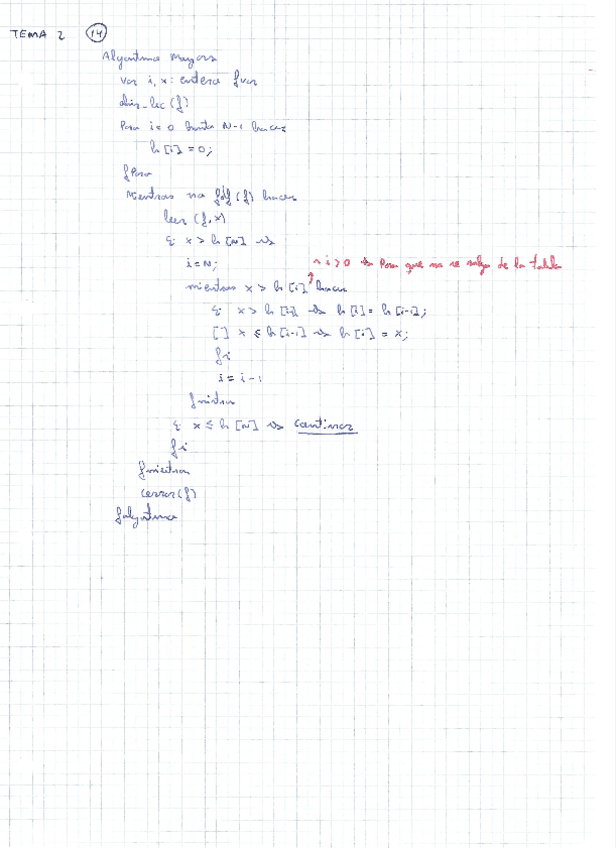 TEMA 2 (14)
Algoritmo Mayores
var i, x: entero fvar
abrir_lec (f)
Para i=0 hasta N-1 hacer
h[i] = 0;
fPara
Mientras no fdf (f) hacer
leer (f,x)
x > h[N] →
i=N;
∧ i>0 → Para que no se salga de la tabla
mientras x > h[i] hacer
x > h[i] → h[i] = h[i-1];
[] x ≤ h[i-1] → h[i] = x;
fi
i = i-1
fmientras
x ≤ h[N] → continuar
fi
fmientras
cerrar(f)
falgoritmo